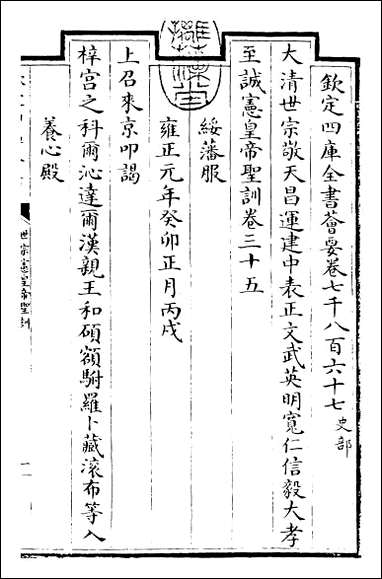 欽定四庫全書薈要卷七千八百六十七史部
大清世宗敬天昌運建中表正文武英明寬仁信毅大孝
至誠憲皇帝聖訓卷三十五
綏藩服
雍正元年癸卯正月丙戌
上召來京叩謁
梓宮之科爾沁達爾漢親王和碩額駙羅卜藏滾布等入
養心殿
世宗憲皇帝聖訓
一